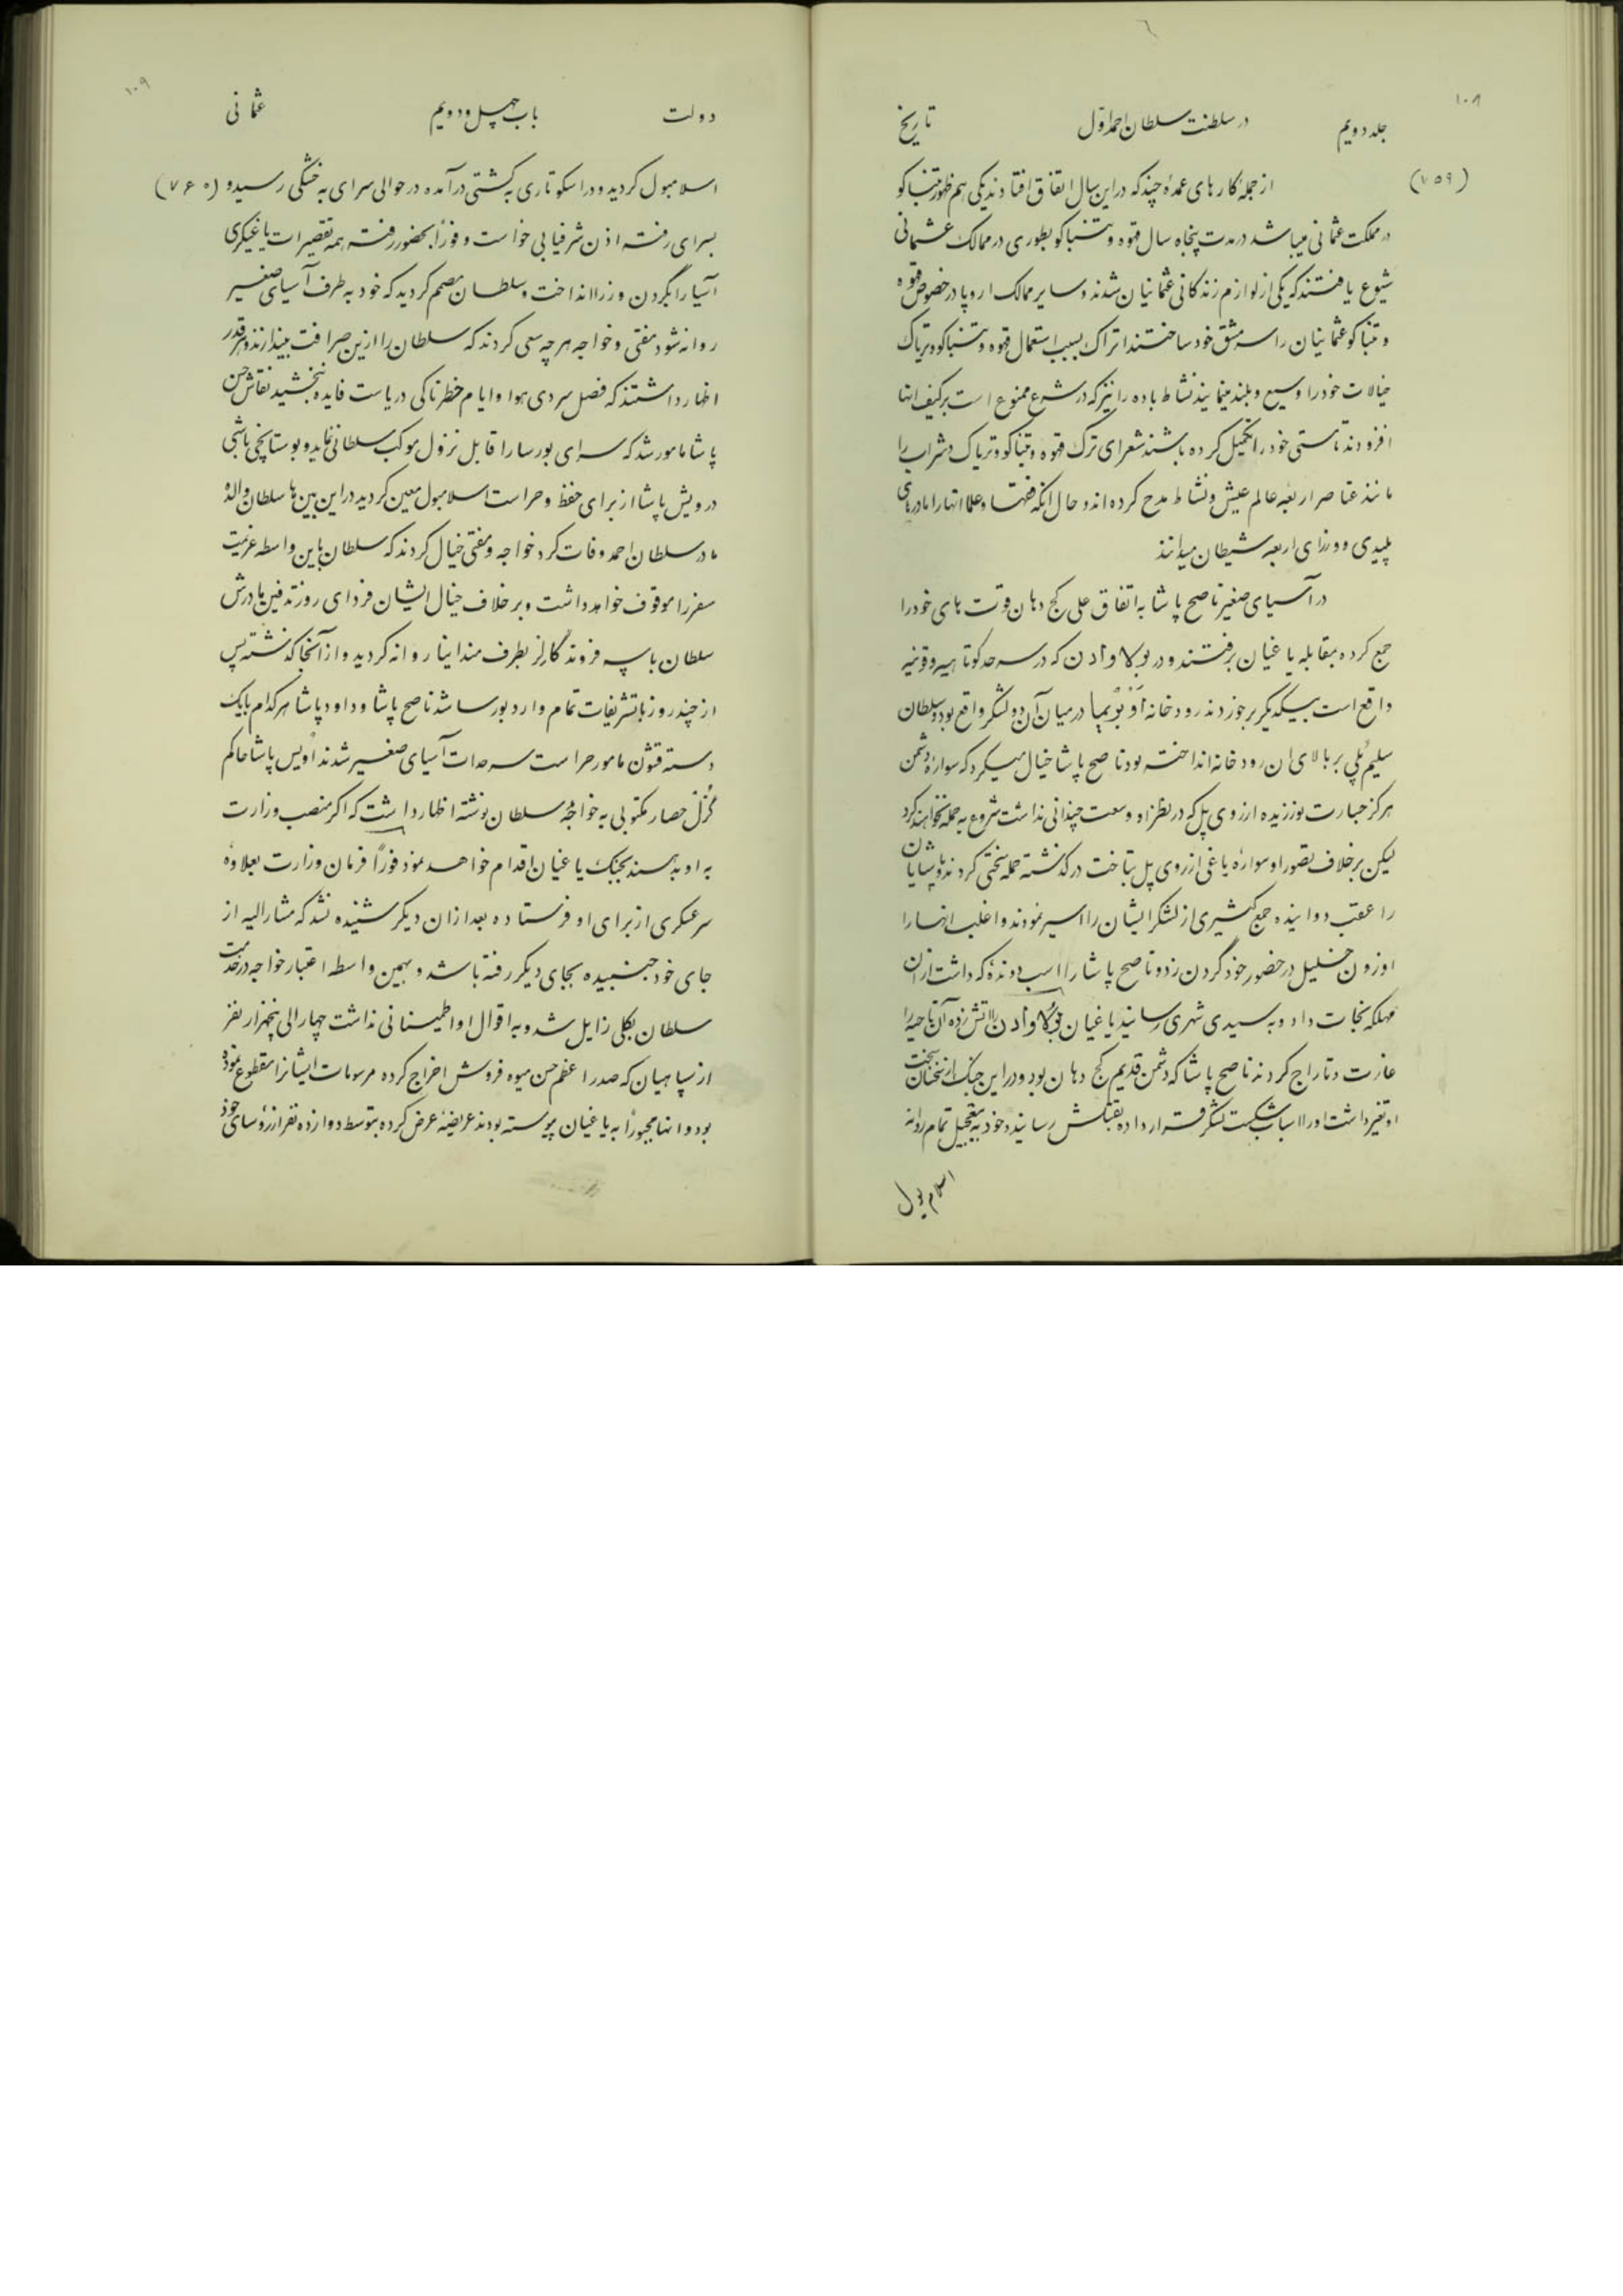 ۱۰۸
جلد دویم در سلطنت سلطان احمد اوّل تاریخ
(۷۵۹) از جملهٔ کارهای عمدهٔ چند که در این سال اتفاق افتادند یکی هم ظهور تنباکو
در مملکت عثمانی میباشد در مدت پنجاه سال قهوه و تنباکو بطوری در ممالک عثمانی
شیوع یافتند که یکی از لوازم زندکانی عثمانیان شدند و سایر ممالک اروپا در خصوص قهوه
و تنباکو عثمانیان را سرمشق خود ساختند اتراک بسبب استعمال قهوه و تنباکو و تریاک
خیالات خود را وسیع و بلند مینمایند نشاط باده را نیز که در شرع ممنوع است بر کیف انها
افزودند تا مستی خود را تکمیل کرده باشند شعرای ترک قهوه و تنباکو و تریاک و شراب را
مانند عناصر اربعه عالم عیش و نشاط مدح کرده اند و حال انکه فقها و علما انها را مادرهای
پلیدی و وزرای اربعه شیطان میدانند
در آسیای صغیر ناصح پاشا به اتفاق علی کج دهان قوت های خود را
جمع کرده بمقابله یاغیان برفتند و در بولاوادن که در سرحد کوتاهیه و قونیه
واقع است بیکدیکر برخوردند رودخانه در میان آن دو لشکر واقع بود و سلطان
سلیم پلی بر بالای ان رودخانه انداخته بود ناصح پاشا خیال میکرد که سوارهٔ دشمن
هرکز جسارت نورزیده از روی پل که در نظر او وسعت چندانی نداشت شروع به حمله نخواهند کرد
لیکن بر خلاف تصور او سوارهٔ یاغی از روی پل بتاخت در کذشته حملهٔ سختی کردند و پاشایان
را عقب دوانیده جمع کثیری از لشکر ایشان را اسیر نمودند و اغلب انها را
اوزون خلیل در حضور خود گردن زد و ناصح پاشا را اسب دوندهٔ که داشت از ان
مهلکه نجات داد و به سیدی شهری رسانید یاغیان بولاوادن را اتش زده آن ناحیه را
غارت و تاراج کردند ناصح پاشا که دشمن قدیم کج دهان بود و در این جنک از سخنان سخت
او تغیر داشت او را اسباب شکست لشکر قرار داده بقتلش رسانید و خود به تعجیل تمام روانهٔ
اسلامبول
۱۰۹
دولت باب چهل و دویم عثمانی
اسلامبول کردید و در اسکوتاری به کشتی در آمده در حوالی سرای به خشکی رسید و (۷۶۰)
بسرای رفته اذن شرفیابی خواست و فوراً بحضور رفته همه تقصیرات یاغیکری
آسیا را بگردن وزرا انداخت و سلطان مصمم کردید که خود به طرف آسیای صغیر
روانه شود مفتی و خواجه هر چه سعی کردند که سلطان را ازین صرافت بیندازند و هر قدر
اظهار داشتند که فصل سردی هوا و ایام خطرناکی دریاست فایده نبخشید نقاش حسن
پاشا مامور شد که سرای بورسا را قابل نزول موکب سلطانی نماید و بوستانچی باشی
درویش پاشا از برای حفظ و حراست اسلامبول معین کردید در این بین ها سلطان والدهٔ
مادر سلطان احمد وفات کرد خواجه و مفتی خیال کردند که سلطان باین واسطه عزیمت
سفر را موقوف خواهد داشت و بر خلاف خیال ایشان فردای روز تدفین مادرش
سلطان با سه فروند گالر بطرف مندانیا روانه کردید و از آنجا کذشته پس
از چند روز با تشریفات تمام وارد بورسا شد ناصح پاشا و داود پاشا هر کدام با یک
دسته قشون مامور حراست سرحدات آسیای صغیر شدند اویس پاشا حاکم
گزل حصار مکتوبی به خواجهٔ سلطان نوشته اظهار داشت که اکر منصب وزارت
به او بدهند بجنک یاغیان اقدام خواهد نمود فوراً فرمان وزارت بعلاوهٔ
سرعسکری از برای او فرستاده بعد از ان دیکر شنیده نشد که مشارالیه از
جای خود جنبیده بجای دیکر رفته باشد و بهمین واسطه اعتبار خواجه در خدمت
سلطان بکلی زایل شد و به اقوال او اطمینانی نداشت چهار الی پنجهزار نفر
از سپاهیان که صدر اعظم حسن میوه فروش اخراج کرده مرسومات ایشان را مقطوع نموده
بود و انها مجبوراً به یاغیان پیوسته بودند عریضهٔ عرض کرده بتوسط دوازده نفر از رؤسای خود